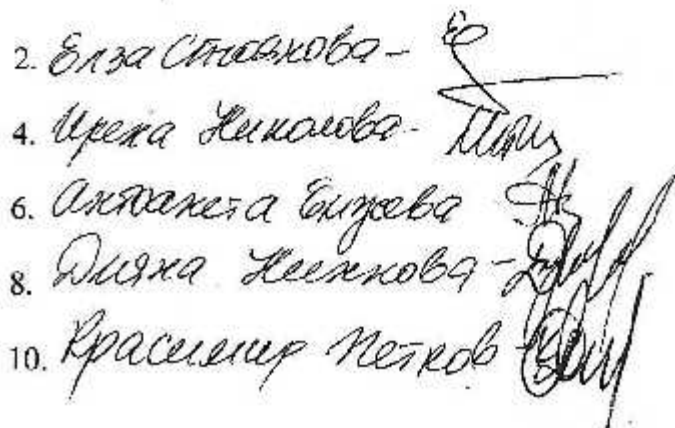 2. Елза Стоянова -
4. Ирена Николова -
6. Антоанета
8. Дияна -
10. Красимир Петков -